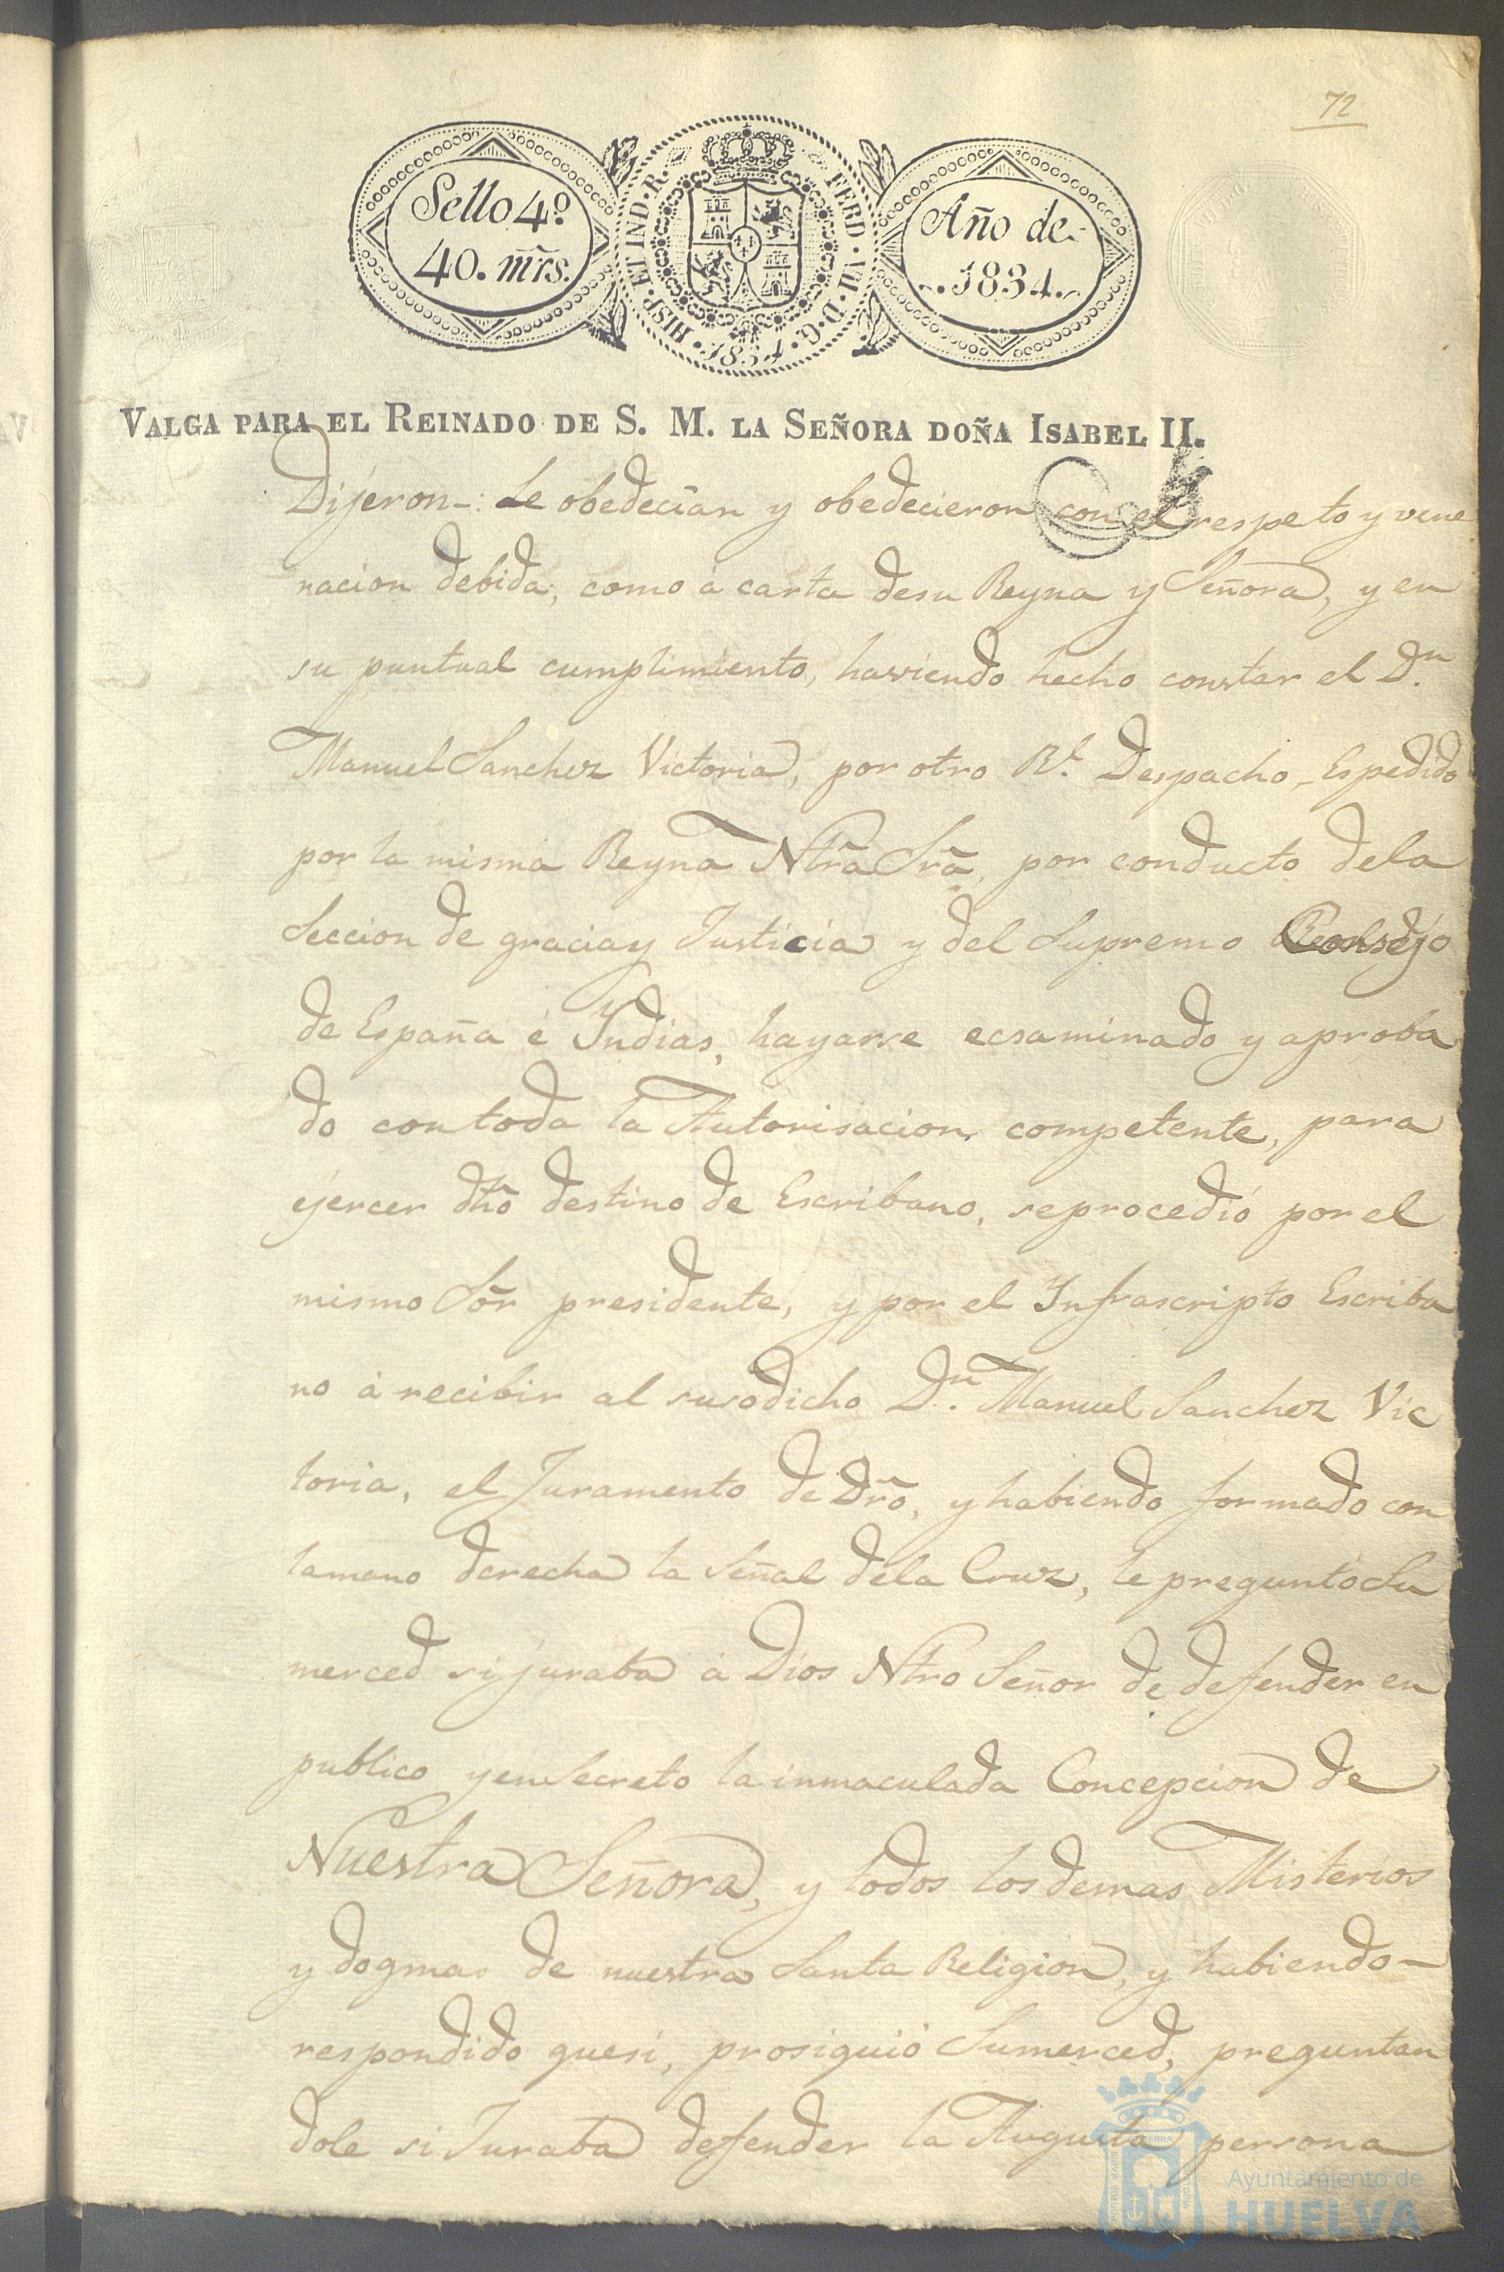 72
Sello 4º
40. mrs.
HISP. ET IND. R.
FERD. VII. D. G.
.1834.
Año de
1834.
VALGA PARA EL REINADO DE S. M. LA SEÑORA DOÑA ISABEL II.
Dijeron: Le obedecian y obedecieron con el respeto y vene
racion debida, como á carta desu Reyna y Señora, y en
su puntual cumplimiento, haviendo hecho constar el Dn.
Manuel Sanchez Victoria, por otro Rl. Despacho, Espedido
por la misma Reyna Ntra Sra, por conducto dela
Seccion de gracia y Justicia y del Supremo Consejo
de España é Yndias, hayarse ecsaminado y aproba
do con toda la Autorisacion competente, para
ejercer dho destino de Escribano, se procedió por el
mismo Sor presidente, y por el Infrascripto Escriba
no á recibir al susodicho Dn. Manuel Sanchez Vic
toria, el Juramento de Dro, y habiendo formado con
lamano derecha la Señal dela Cruz, le preguntó Su
merced si juraba á Dios Ntro Señor de defender en
publico y en Secreto la inmaculada Concepcion de
Nuestra Señora, y todos los demas Misterios
y dogmas de nuestra Santa Religion, y habiendo
respondido quesi, prosiguió Sumerced, preguntan
dole si Juraba defender la Augusta persona
Ayuntamiento de
HUELVA